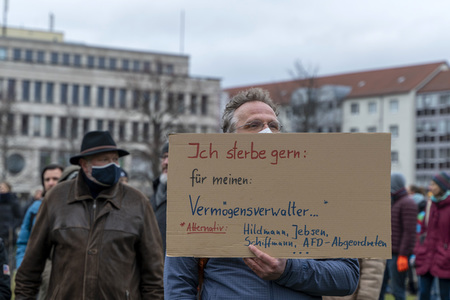 Ich sterbe gern:
für meinen:
Vermögensverwalter..."
*Alternativ: Hildmann, Jebsen,
Schiffmann, AFD-Abgeordneten
...